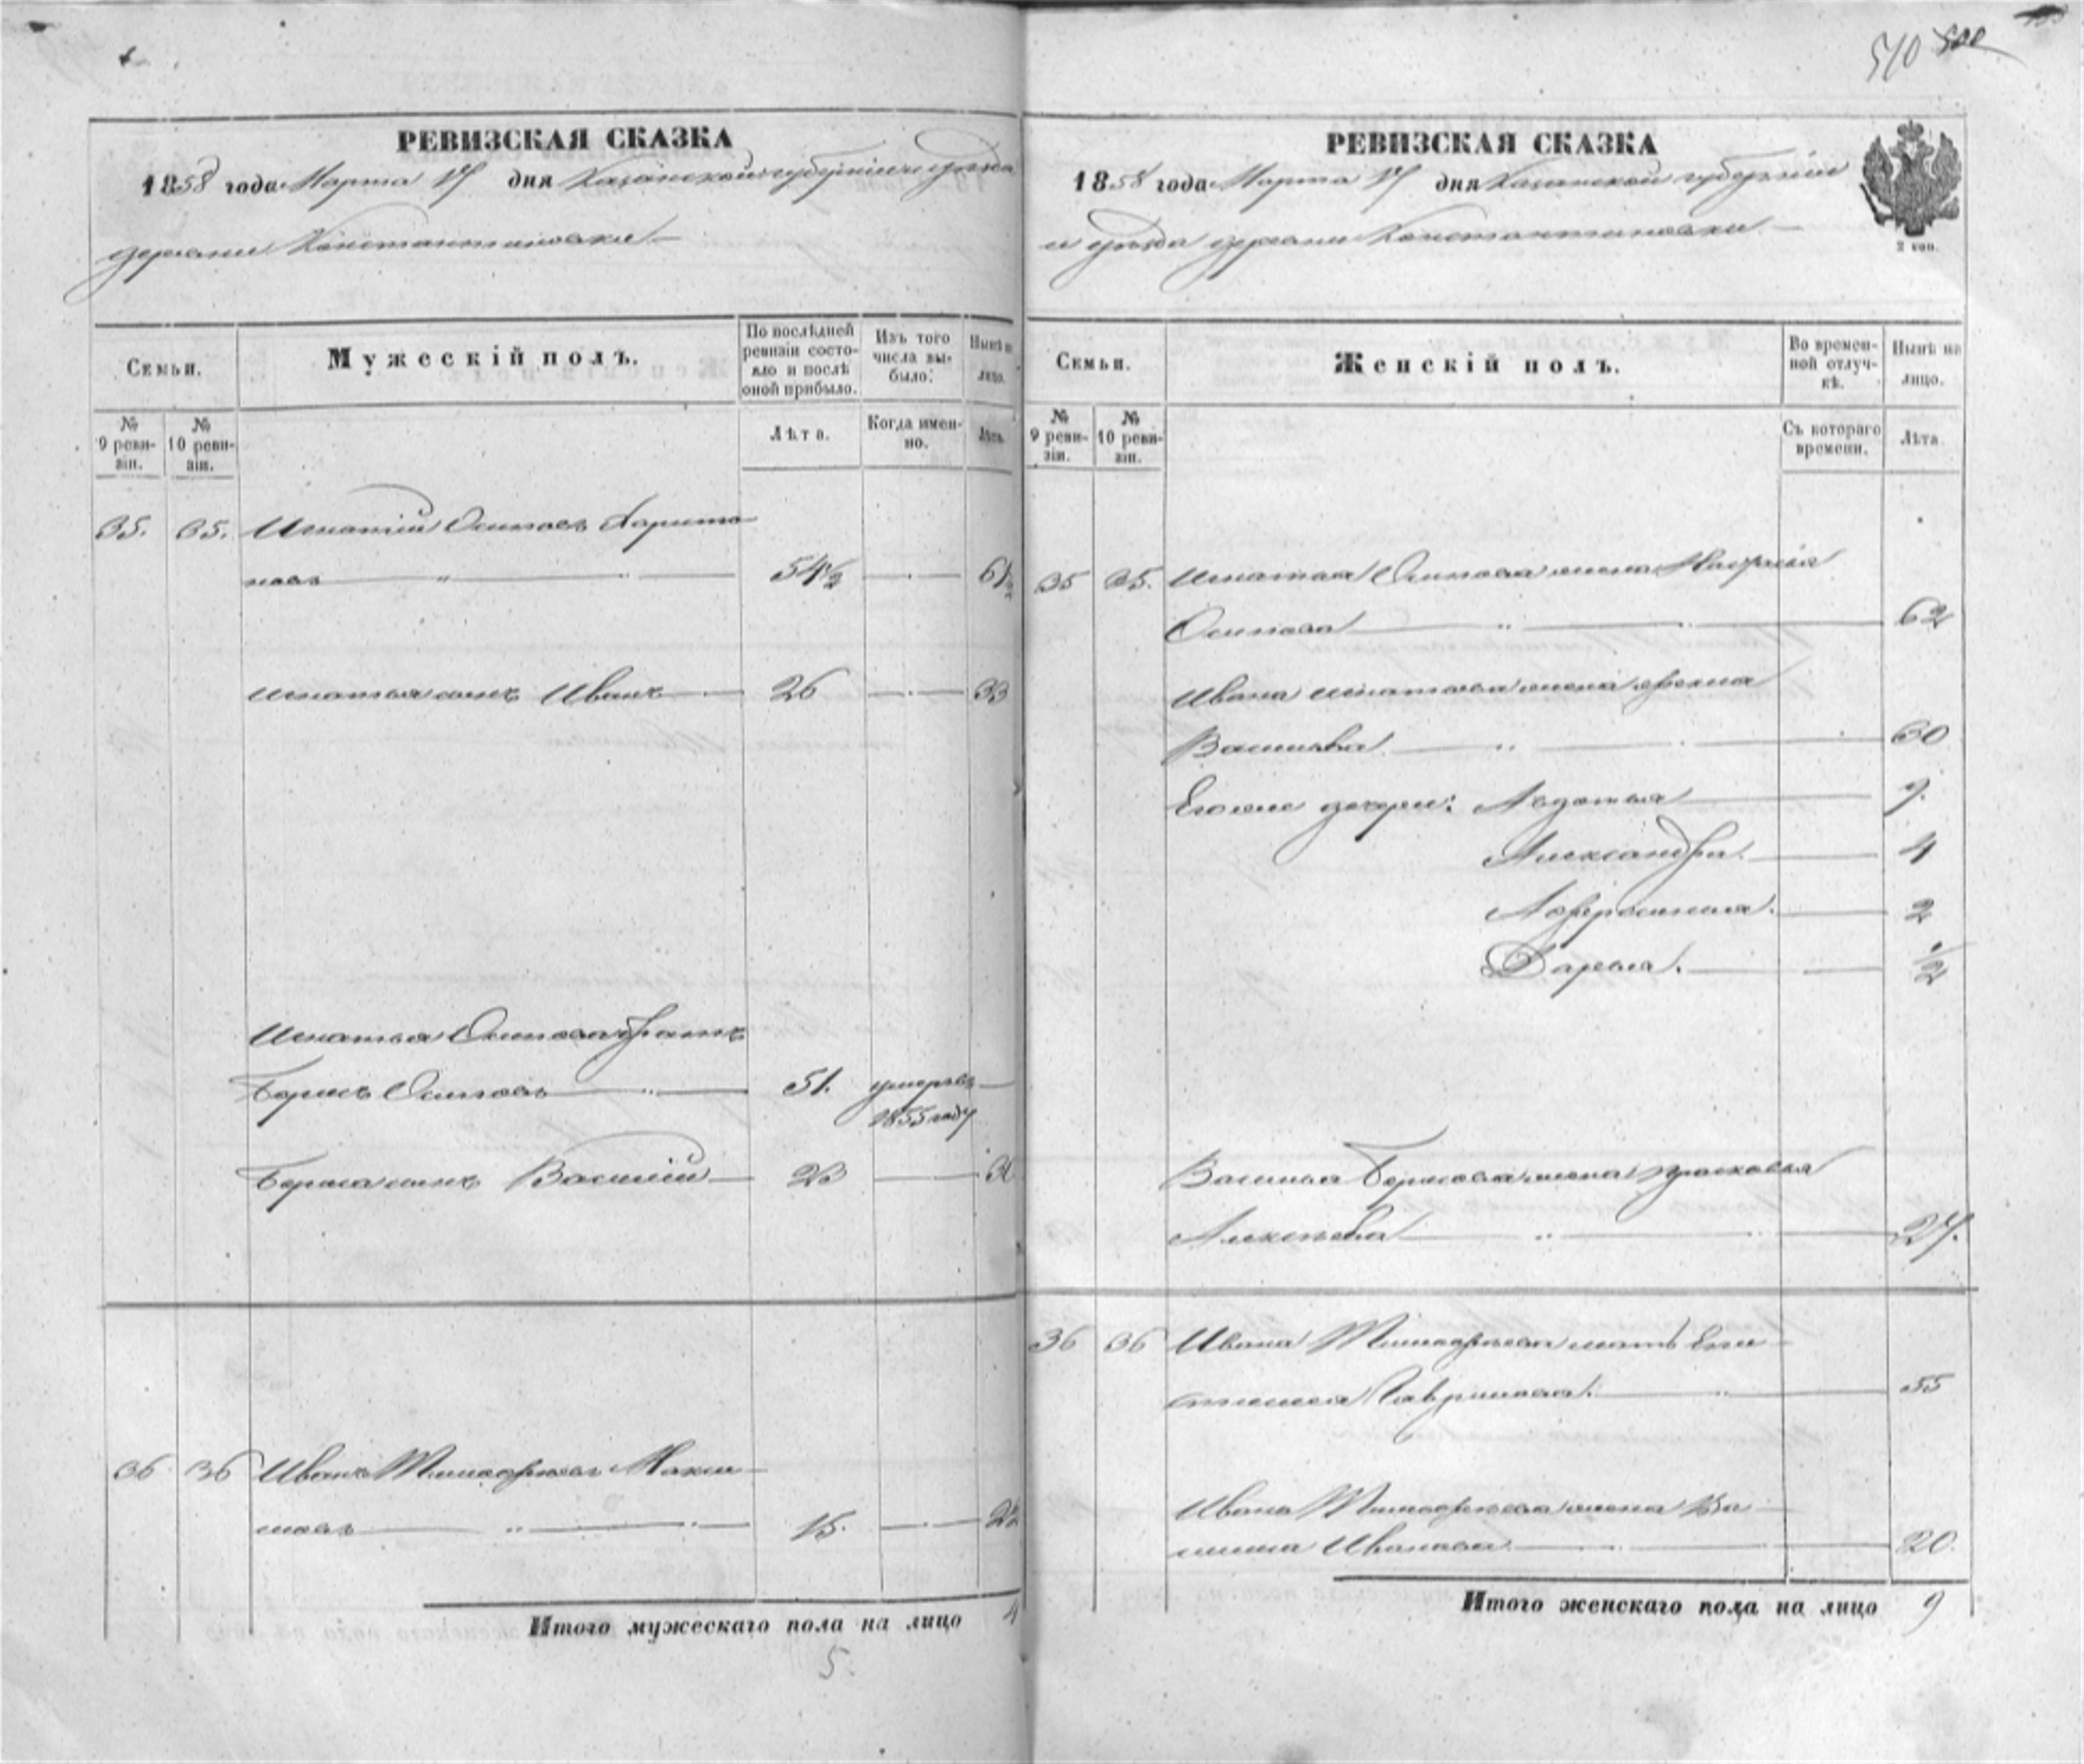 510 500
РЕВИЗСКАЯ СКАЗКА
1858 года Марта дня Казанской губернiи и уѣзда
деревни Константиновки
Семьи.
Мужескiй полъ.
По послѣдней ревизiи состояло и послѣ оной прибыло.
Изъ того числа выбыло.
Нынѣ на лицо.
№ 9 ревизiи.
№ 10 ревизiи.
Лѣта.
Когда именно.
Лѣта.
35. 35. Игнатiй Осиповъ Харито
новъ 54½ 61½
Игнатья сынъ Иванъ 26 33
Игнатья Осипова братъ
Борисъ Осиповъ 51. умеръ въ
1855 году
Бориса сынъ Василiй 23 30
36 36 Иванъ Тимофѣевъ Макси
мовъ 15. 22
Итого мужескаго пола на лицо 4
5.
РЕВИЗСКАЯ СКАЗКА
1858 года Марта дня Казанской губернiи
и уѣзда деревни Константиновки
2 коп.
Семьи.
Женскiй полъ.
Во временной отлучкѣ.
Нынѣ на лицо.
№ 9 ревизiи.
№ 10 ревизiи.
Съ котораго времени.
Лѣта.
35 35. Игнатья Осипова жена
Осипова 62
Ивана Игнатьева жена
Васильева 30
Его же дочери: Авдотья 9.
Александра 4
2
Дарья. ½
Василья Борисова жена Прасковья
Алексѣева 27.
36 36 Ивана Тимофѣева мать Епи
стимiя Гаврилова. 55
Ивана Тимофѣева жена Ва
Иванова 20.
Итого женскаго пола на лицо 9